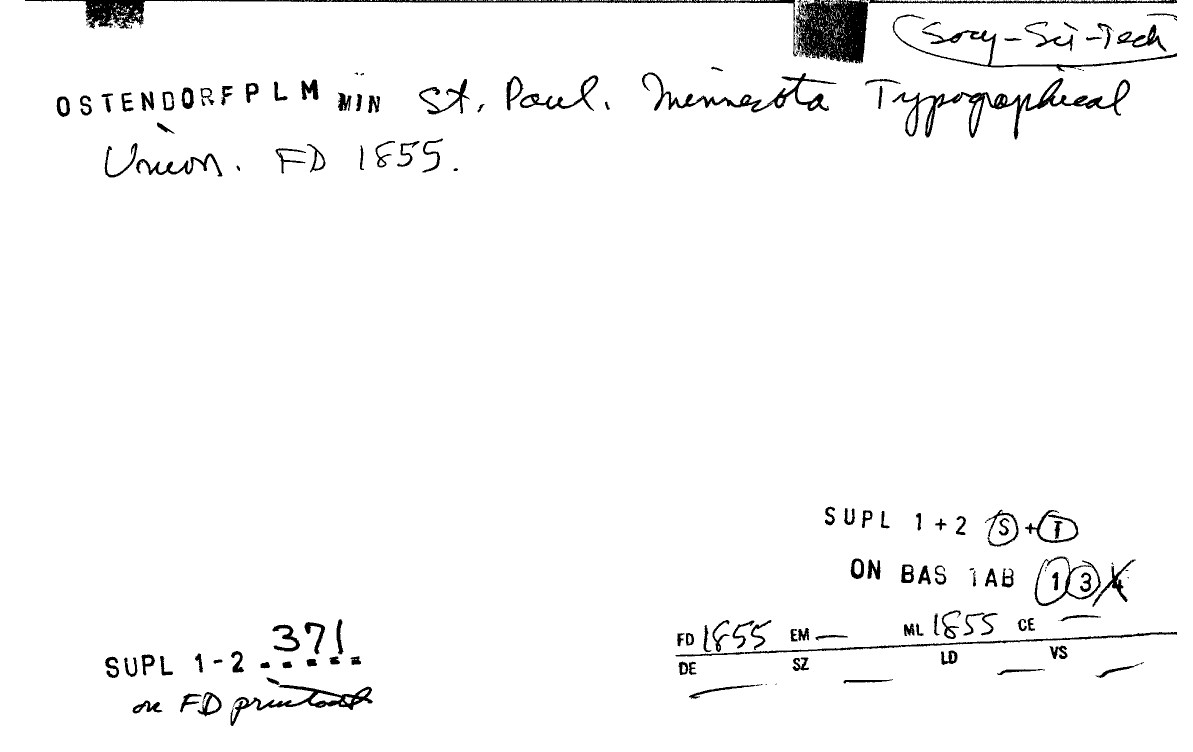 Socy-Sci-Tech
OSTENDORFPLM MIN St. Paul. Minnesota Typographical
Union. FD 1855.
SUPL 1+2 S+T
ON BAS TAB 1 3 4
FD 1855 EM — ML 1855 CE —
DE — SZ — LD — VS —
SUPL 1-2 371
on FD printout